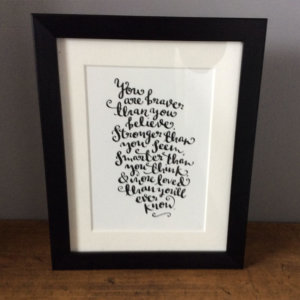 You
are braver
than you
believe.
Stronger than
you seem,
Smarter than
you think
& more loved
than you'll
ever
know.